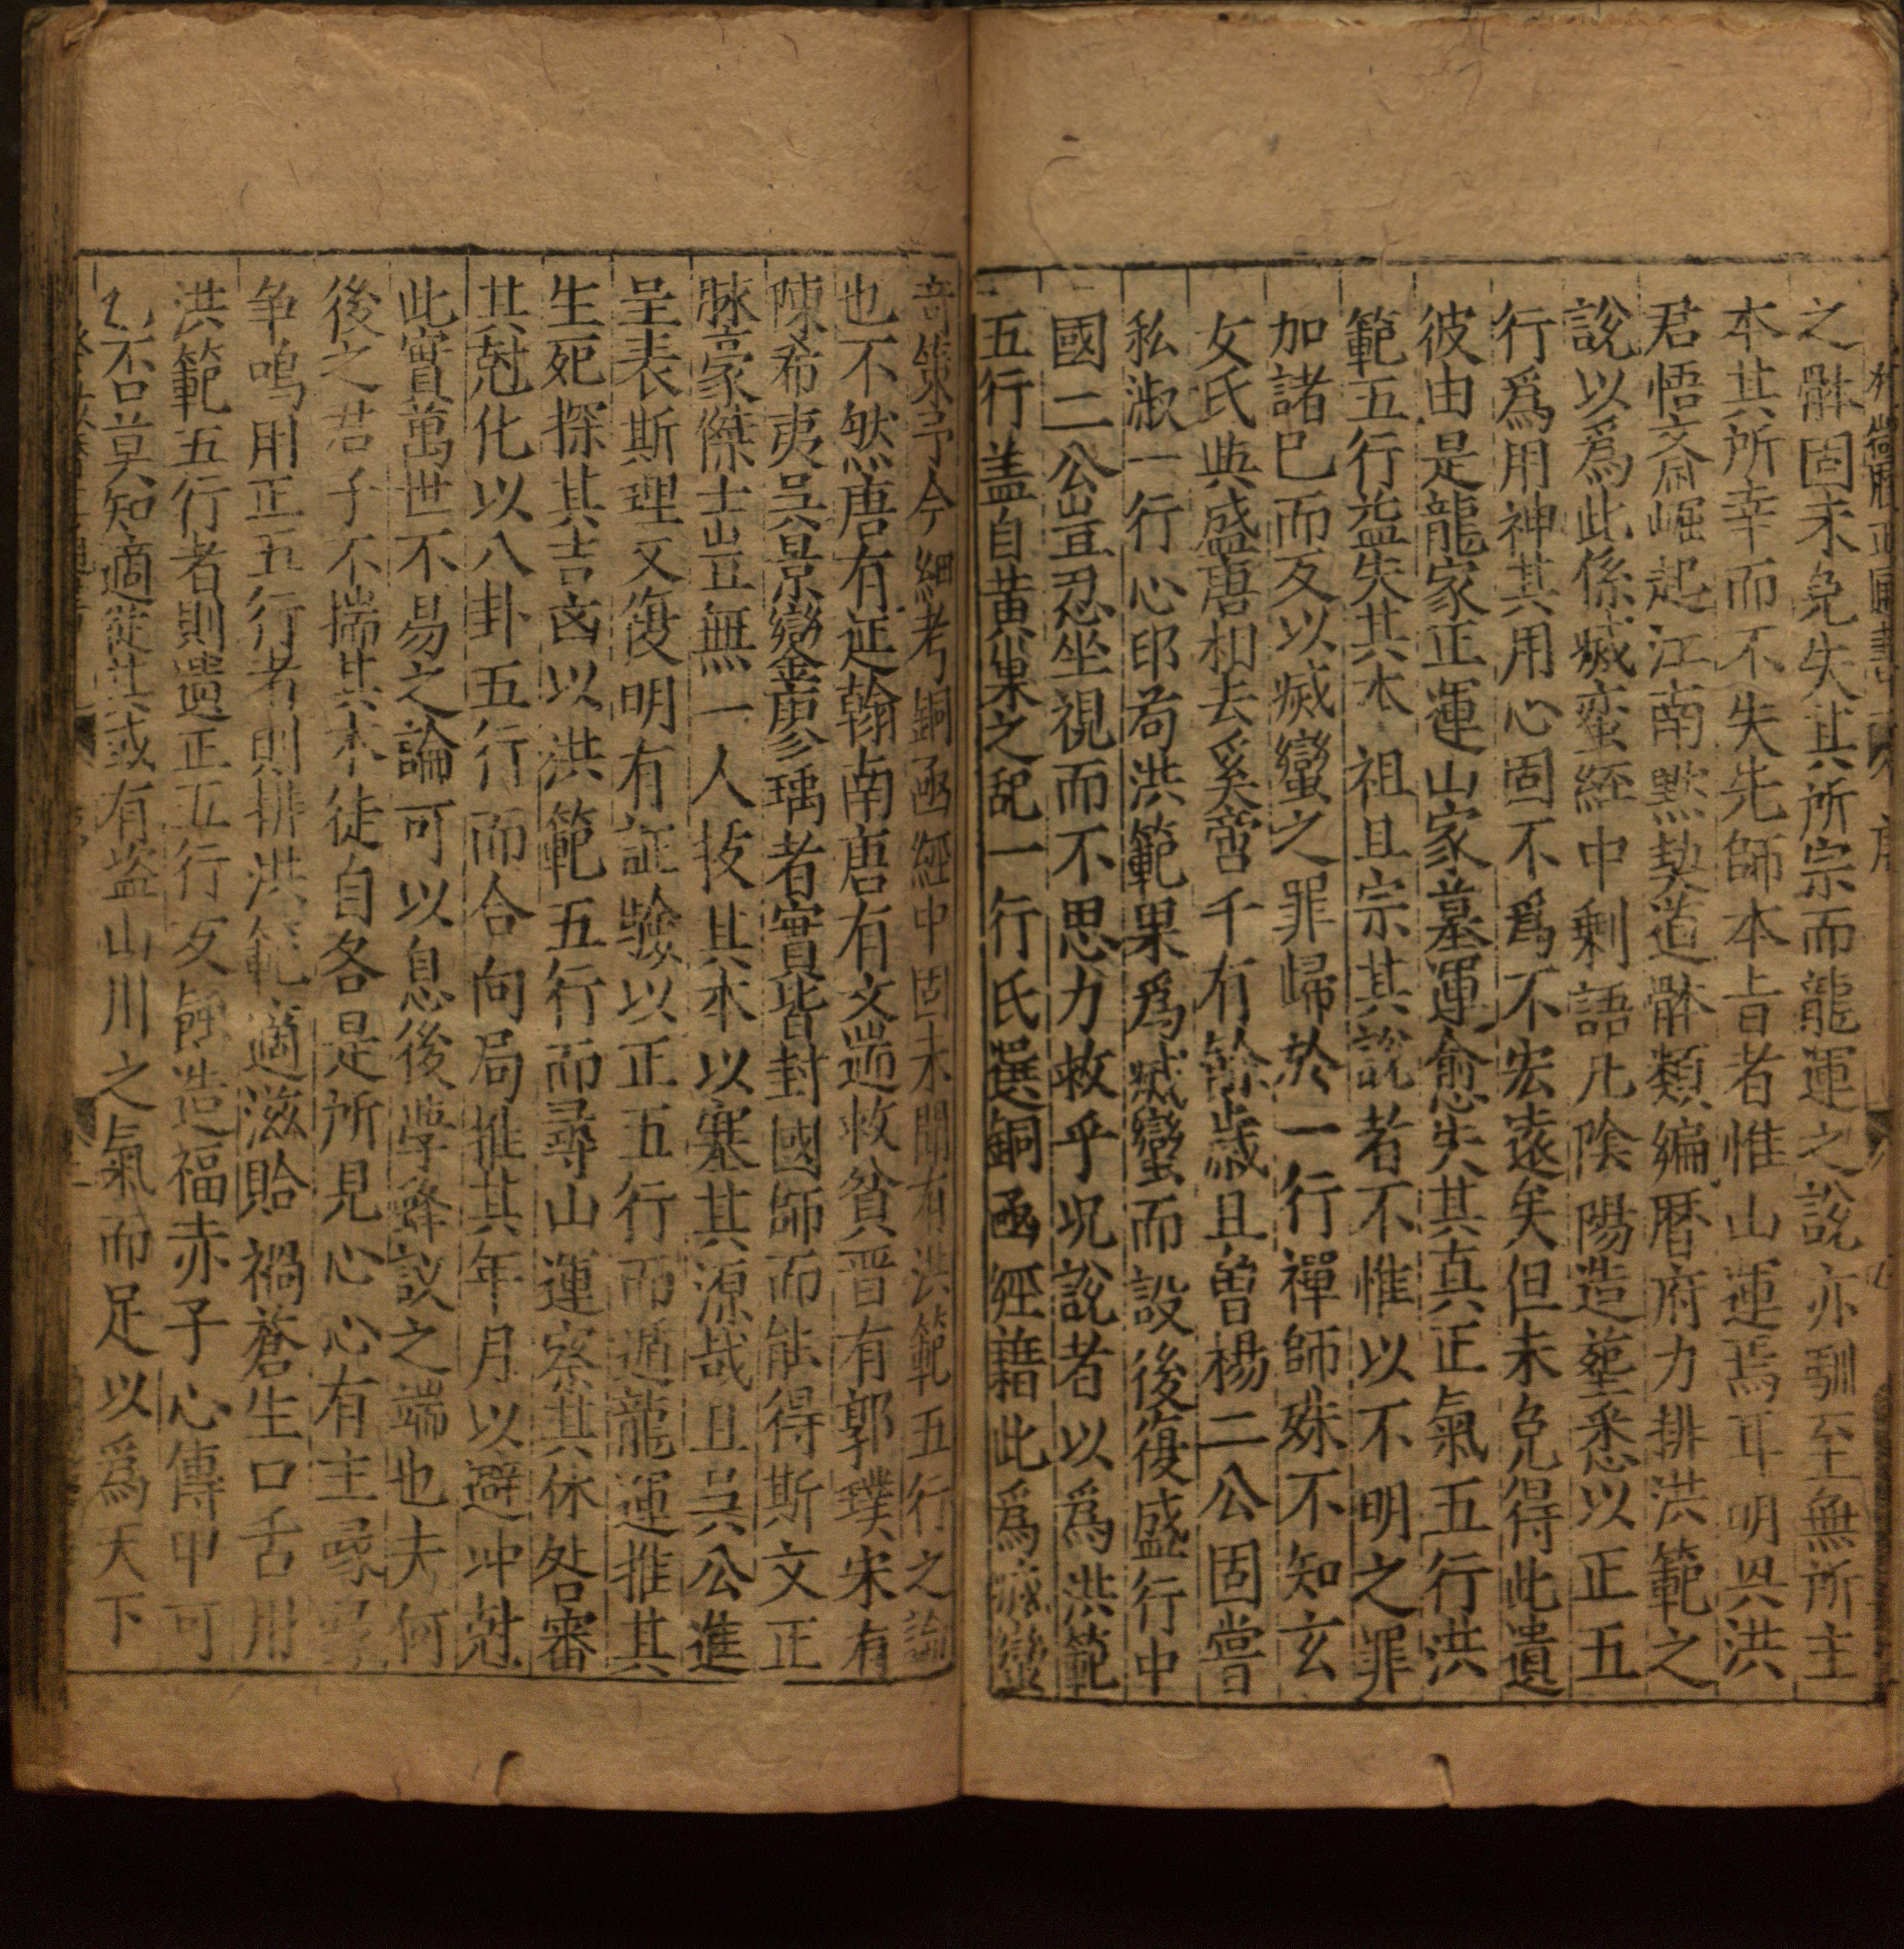 之骵固未免失其所宗而龍運之說亦馴至無所主
本其所幸而不失先師本旨者惟山運焉耳明興洪
君悟齋崛起江南默契道骵類編暦府力排洪範之
說以爲此係㓕蛮經中剩語凡陰陽造塟悉以正五
行爲用神其用心固不爲不宏遠矣但未免得此遺
彼由是龍家正運山家墓運愈失其真正氣五行洪
範五行益失其本祖且宗其說者不惟以不明之罪
加諸已而反以㓕蠻之罪歸於一行禪師殊不知玄
女氏與盛唐相去奚啻千有餘歳且曽楊二公固嘗
私淑一行心印苟洪範果爲㓕蠻而設後復盛行中
國二公豈忍坐視而不思力救乎况說者以爲洪範
五行盖自黄巢之亂一行氏選銅凾經藉此爲㓕蠻
竒策予今細考銅凾經中固未聞有洪範五行之論
也不然唐有延翰南唐有文遄救貧晋有郭璞宋有
陳希夷吳景鸞廖瑀者實皆封國師而能得斯文正
脉豪傑士豈無一人抜其本以塞其源哉且吳公進
呈表斯理又復明有証驗以正五行而遁龍運推其
生死探其吉凶以洪範五行而尋山運察其休咎審
其尅化以八卦五行而合向局推其年月以避冲尅
此實萬世不易之論可以息後學蜂議之端也夫何
後之君子不揣其本徒自各是所見心心有主喙喙
争鳴用正五行者則排洪範適滋貽禍蒼生口舌用
洪範五行者則遺正五行反餙造福赤子心傳甲可
乙否莫知適從其或有盗山川之氣而足以爲天下